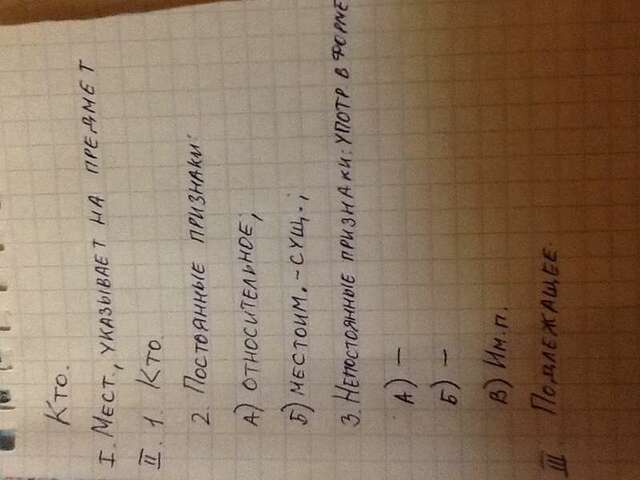 Кто.
I. Мест., указывает на предмет
II. 1. Кто
2. Постоянные признаки:
А) относительное;
Б) местоим.-сущ.;
3. Непостоянные признаки: употр. в форме
А) –
Б) –
В) Им.п.
III. Подлежащее.